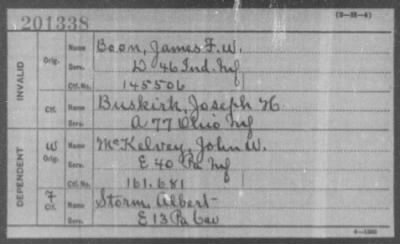 201338
(3-38-4)
INVALID
Orig. Name Boon, James F. W.
Serv. D 46 Ind. Inf
Ctf. No. 145506
Ctf. Name Buskirk, Joseph H
Serv. A 77 Ohio Inf
DEPENDENT
W Orig. Name McKelvey, John W.
Serv. E 40 Pa Inf
Ctf. No. 161.681
F Ctf. Name Storm, Albert
Serv. E 13 Pa Cav